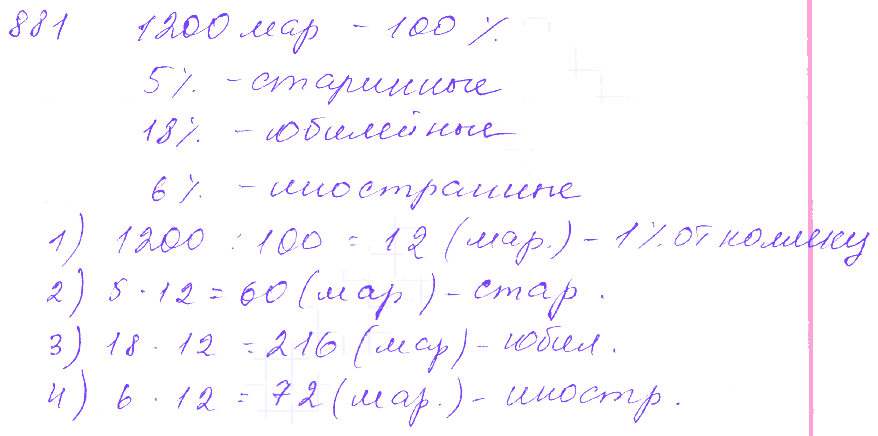 881 1200 мар - 100 %.
5% - старинные
18% - юбилейные
6% - иностранные
1) 1200 : 100 = 12 (мар.) - 1% от коллекц
2) 5 · 12 = 60 (мар) - стар.
3) 18 · 12 = 216 (мар) - юбил.
4) 6 · 12 = 72 (мар.) - иностр.